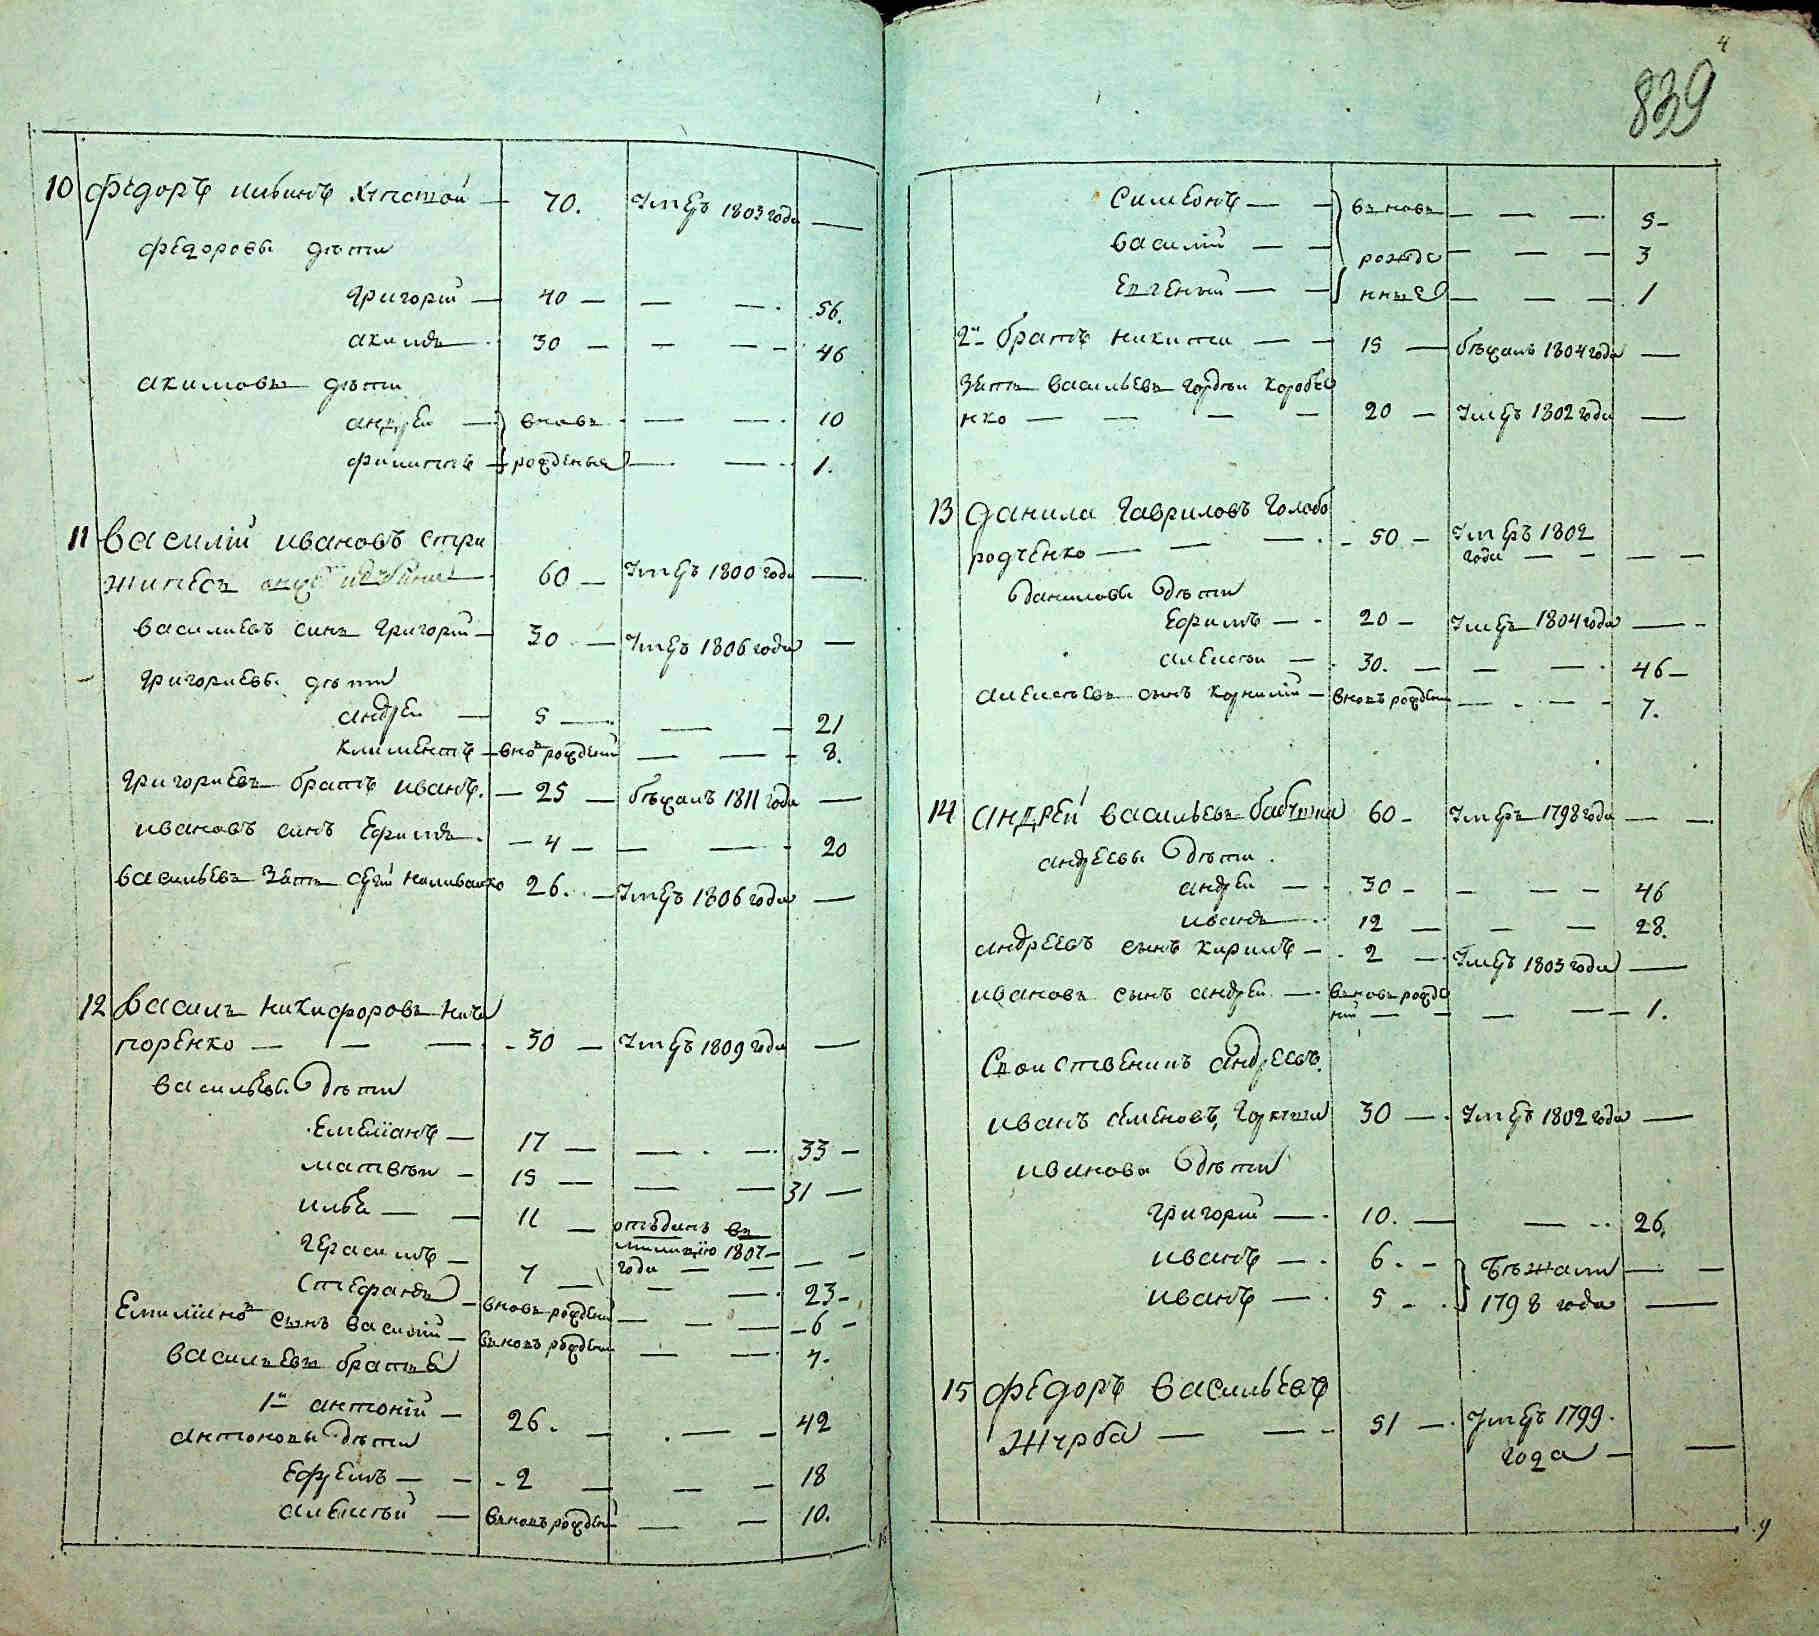 10 Федоръ Ильинъ Хупотой — 70. умеръ 1803 года —
Федоровы дѣти
Григорій — 40 — — — 56.
Акимъ — 30 — — — 46
Акимовы дѣти
Андрей — вновь — — 10
Филиппъ — рожденыя — — 1.
11 Василій Ивановъ Стри
жипесъ 60 — умеръ 1800 года —
Васильевъ синъ Григорій — 30 — умеръ 1806 года —
Григориевы дѣти
Андрей — 5 — — — 21
Климентъ — вновь рожденый — — 8.
Григориевъ братъ Иванъ. — 25 — бѣжалъ 1811 года —
Ивановъ синъ Ефимъ. — 4 — — — 20
Васильевъ зять Сергій Наливайко 26. — умеръ 1806 года —
12 Василь Никифоровъ Ничи
поренко — — — 30 — умеръ 1809 года —
Васильевы дѣти
Емеліанъ — 17 — — — 33 —
Матвѣй — 15 — — — 31 —
Илья — — 11 — отъданъ въ
милицію 1807 —
года — — —
Герасимъ — 7 — — — 23 —
Стефанъ — вновь рожденый — — 6 —
Емиліановъ сынъ Василій — вновь рожденый — — 4.
Васильевы братья
1й Антоній — 26. — — — 42
Антоновы дѣти
Ефремъ — — 2 — — — 18
Алексѣй — вновь рожденый — — 10.
4
839
Симеонъ — — вновь — — — 5 —
Василій — — рожде — — — 3
Евгеній — — нные — — — 1
2й братъ Никита — — 15 — бѣжалъ 1804 года —
Зять Васильевъ Гордѣй Коробче
нко — — — — 20 — умеръ 1802 года —
13 Данила Гавриловъ Голобо
родченко — — — 50 — умеръ 1802
года — — — —
Даниловы дѣти
Ефимъ — — 20 — умеръ 1804 года — —
Алексѣй — 30. — — — 46 —
Алексѣевъ сынъ Корнилій — вновь рожден — — — 7.
14 Андрей Васильевъ 60 — умеръ 1798 года — —
Андреевы дѣти.
Андрей — — 30 — — — — 46
Иванъ — 12 — — — 28.
Андреевъ сынъ Кирилъ — 2 — умеръ 1803 года —
Ивановъ сынъ Андрей — вновь рожде
ный — — — — — 1.
Свойственикъ Андреевъ.
Иванъ Семеновъ 30 — умеръ 1802 года —
Ивановы дѣти
Григорій — 10. — — 26.
Иванъ — 6. — Бѣжали — —
Иванъ — 5 — 1798 года —
15 Федоръ Васильевъ
Журба — — — 51 — умеръ 1799.
года — —